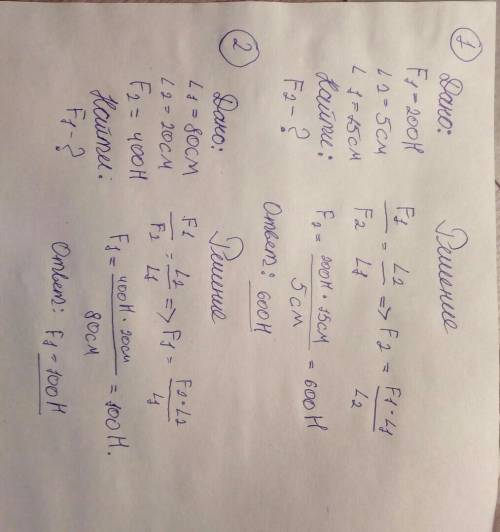 1
Дано:
F1 = 200Н
L2 = 5см
L1 = 15см
Найти:
F2 - ?
Решение
F1/F2 = L2/L1 => F2 = F1·L1/L2
F2 = 200Н·15см/5см = 600Н
Ответ: 600Н
2
Дано:
L1 = 80см
L2 = 20см
F2 = 400Н
Найти:
F1 - ?
Решение
F1/F2 = L2/L1 => F1 = F2·L2/L1
F1 = 400Н·20см/80см = 100Н.
Ответ: F1 = 100Н